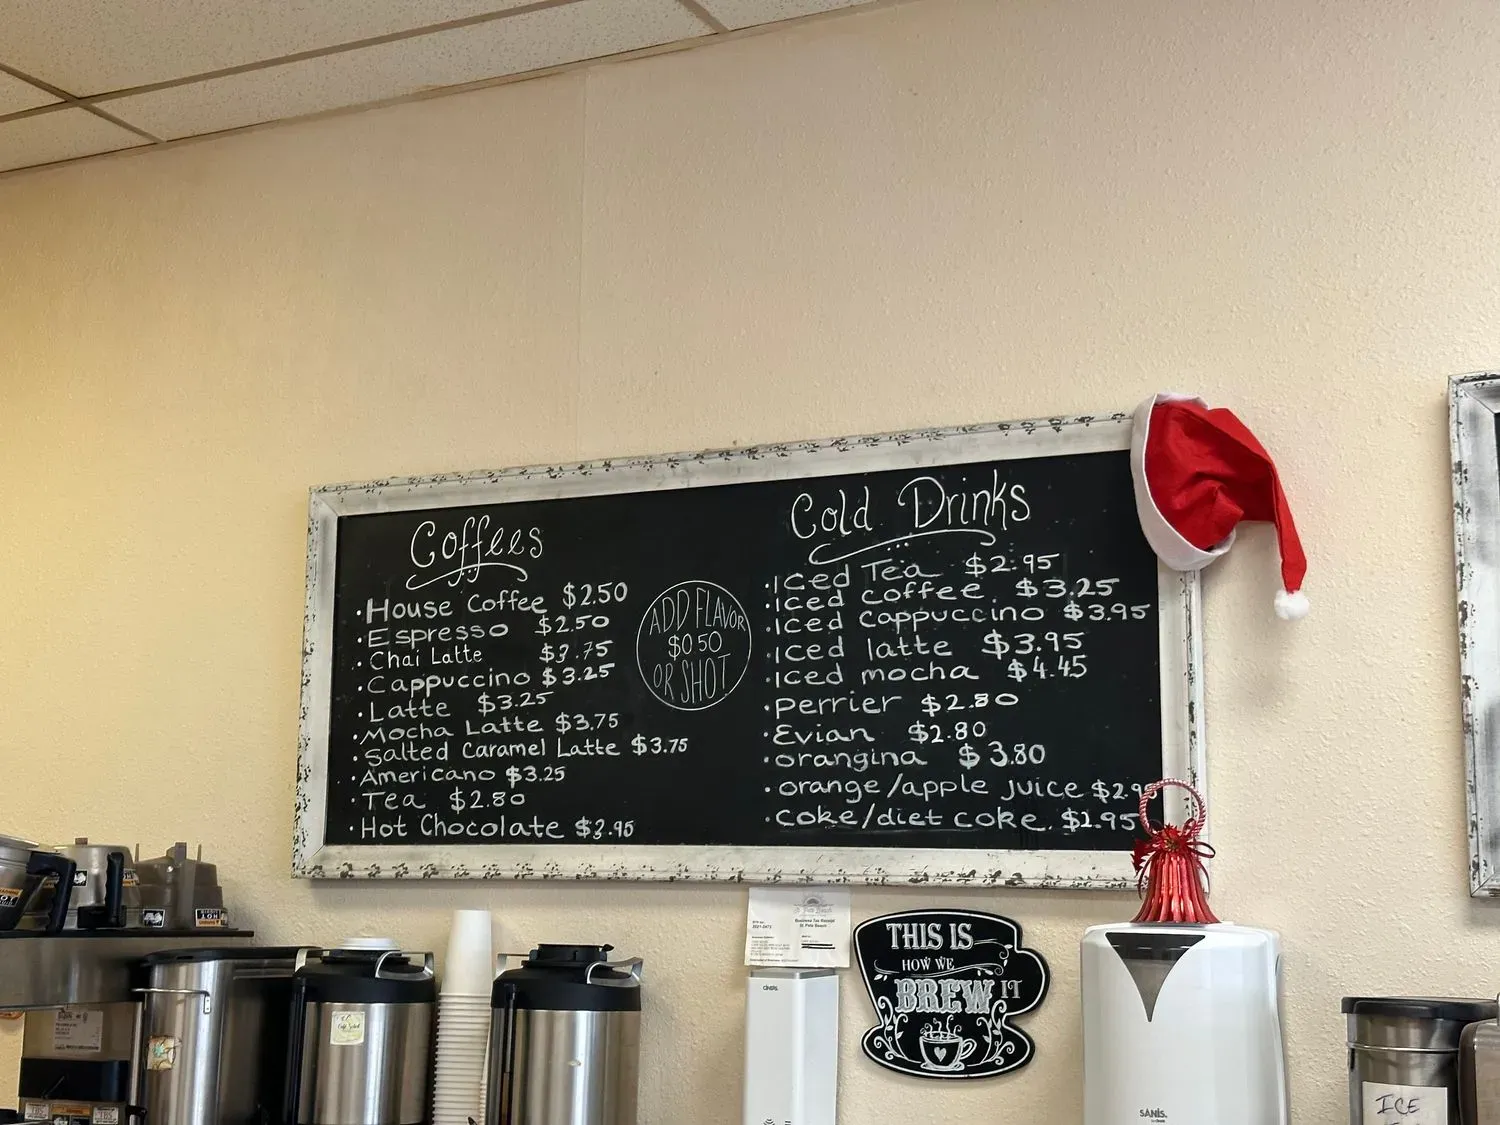 Coffees
• House Coffee $2.50
• Espresso $2.50
• Chai Latte $3.75
• Cappuccino $3.25
• Latte $3.25
• Mocha Latte $3.75
• Salted Caramel Latte $3.75
• Americano $3.25
• Tea $2.80
• Hot Chocolate $3.95
ADD FLAVOR
$0.50
OR SHOT
Cold Drinks
• Iced Tea $2.95
• Iced coffee $3.25
• Iced cappuccino $3.95
• Iced latte $3.95
• Iced mocha $4.45
• perrier $2.80
• Evian $2.80
• orangina $3.80
• orange/apple juice $2.95
• coke/diet coke $1.95
Business Tax Receipt
St. Pete Beach
THIS IS
HOW WE
BREW IT
SANIS.
ICE